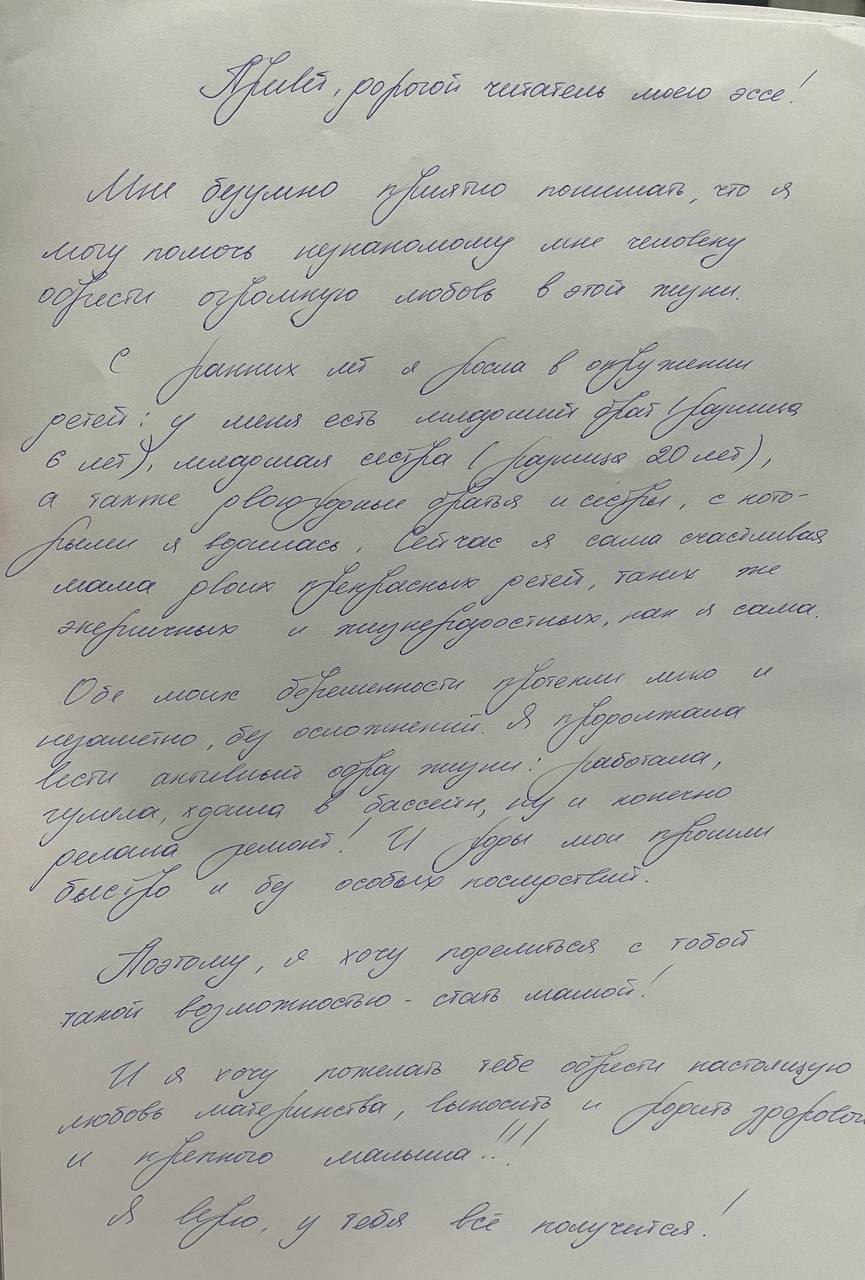 Привет, дорогой читатель моего эссе!
Мне безумно приятно понимать, что я
могу помочь незнакомому мне человеку
обрести огромную любовь в этой жизни.
С ранних лет я росла в окружении
детей: у меня есть младший брат (разница
6 лет), младшая сестра (разница 20 лет),
а также двоюродные братья и сёстры, с кото-
рыми я водилась. Сейчас я сама счастливая
мама двоих прекрасных детей, таких же
энергичных и жизнерадостных, как я сама.
Обе моих беременности протекли легко и
незаметно, без осложнений. Я продолжала
вести активный образ жизни: работала,
гуляла, ходила в бассейн, ну и конечно
делала ремонт! И роды мои прошли
быстро и без особых последствий.
Поэтому, я хочу поделиться с тобой
такой возможностью - стать мамой!
И я хочу пожелать тебе обрести настоящую
любовь материнства, выносить и родить здорового
и крепкого малыша!!!
Я верю, у тебя всё получится!